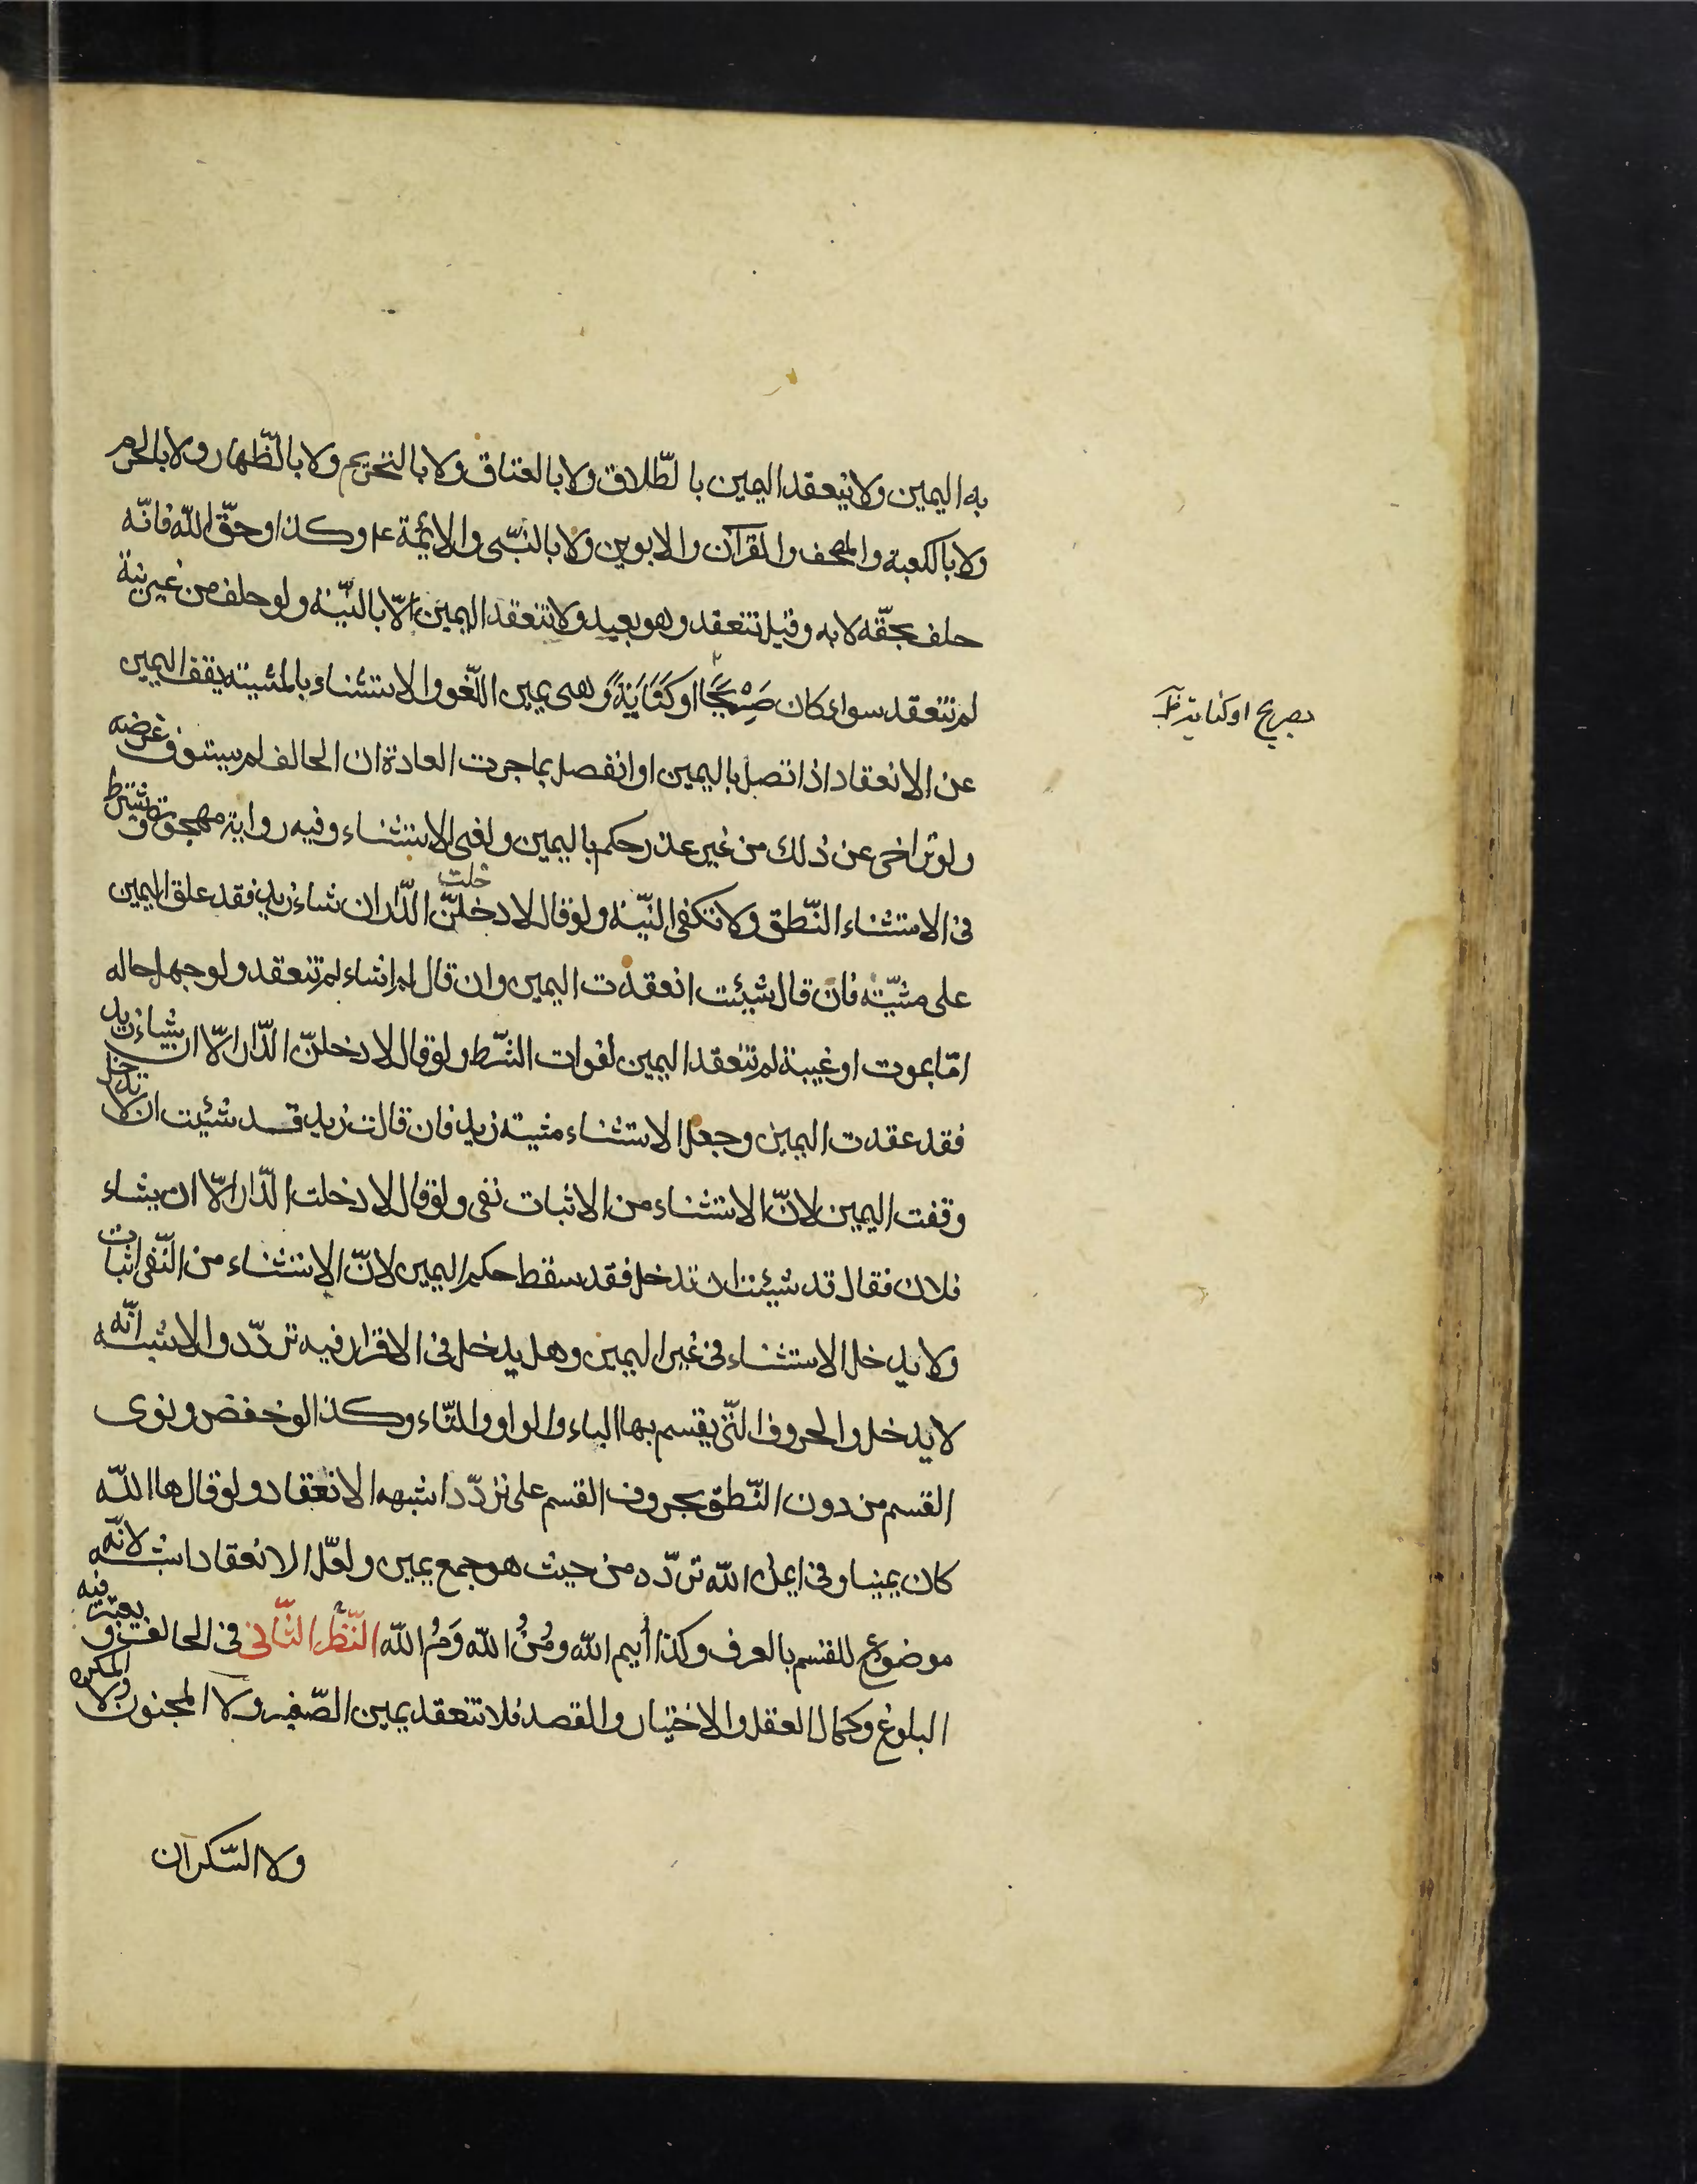 به اليمين ولا ينعقد اليمين بالطّلاق ولا بالعتاق ولا بالتحريم ولا بالظّهار ولا بالحرم
ولا بالكعبة والمصحف والقرآن والابوين ولا بالنّبى والائمّة ع وكذا وحقّ اللّه فانّه
حلف بحقّه لا به وقيل تنعقد وهو بعيد ولا تنعقد اليمين الّا بالنيّة ولو حلف من غير نية
لم تنعقد سواء كان صَرِيْحًا او كَنَايَةً وهى يمين اللّغو والاستثناء بالمشيته يقف اليمين
بصريح او كناية خ
عن الانعقاد اذا تصل باليمين او انفصل بما جرت العادة ان الحالف لم يستوف غرضه
ولو تراخى عن ذلك من غير عذر حكم باليمين ولغى الاستثناء وفيه رواية مهجورة ويشترط
فى الاستثناء النّطق ولا تكفى النيّة ولو قال لادخلنّ الدّار ان شاء زيد فقد علق اليمين
خلت
على مشيّته فان قال شيئت انعقدت اليمين وان قال لم اشاء لم تنعقد ولو جهل حاله
امّا بموت او غيبة لم تنعقد اليمين لفوات الشّرط ولو قال لادخلنّ الدّار الّا ان يشاء زيد
فقد عقدت اليمين وجعل الاستثناء مشية زيد فان قالت زيد قد شئيت ان لا تدخل
وقفت اليمين لانّ الاستثناء من الاثبات نفى ولو قال لا دخلت الدّار الّا ان يشاء
فلان فقال قد شيئت ان تدخل فقد سقط حكم اليمين لانّ الاستثناء من النّفى اثبات
ولا يدخل الاستثناء فى غير اليمين وهل يدخل فى الاقرار فيه تردّد والاشبه انّه
لا يدخل والحروف الّتى يقسم بها الباء والواو والتّاء وكذا لو خفض ونوى
القسم من دون النّطق بحروف القسم على تردّد اشبهه الانعقاد ولو قال ها اللّه
كان يمينا وفى ايمن اللّه تردّد من حيث هو جمع يمين ولعّل الانعقاد اشبه لانّه
موضوع للقسم بالعرف وكذا أيم اللّه ومُنُ اللّه وَمُ اللّه النّظر الثّانى فى الحالف ويعتبر فيه
البلوغ وكمال العقل والاختيار والقصد فلا تنعقد يمين الصّغير ولا المجنون ولا المكره
ولا السّكران